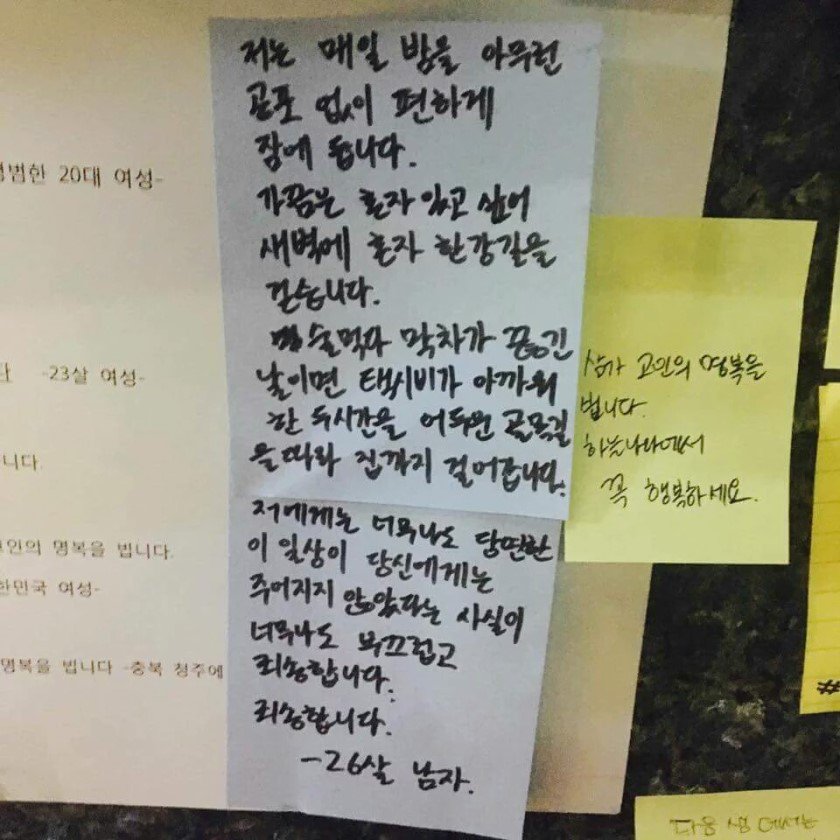 저는 매일 밤을 아무런
공포 없이 편하게
잠에 듭니다.
가끔은 혼자 있고 싶어
새벽에 혼자 한강길을
걷습니다.
술먹다 막차가 끊긴
날이면 택시비가 아까워
한 두시간을 어두운 골목길
을 따라 집까지 걸어갑니다.
저에게는 너무나도 당연한
이 일상이 당신에게는
주어지지 않았다는 사실이
너무나도 부끄럽고
죄송합니다.
죄송합니다.
-26살 남자.
삼가 고인의 명복을
빕니다.
하늘나라에서
꼭 행복하세요.
평범한 20대 여성-
-23살 여성-
니다.
고인의 명복을 빕니다.
한민국 여성-
명복을 빕니다 -충북 청주에
#
다음 생에서는